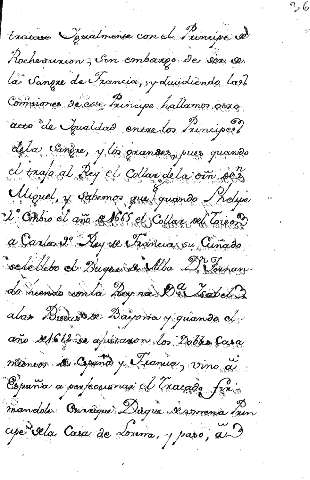 26
Igualmente con el Principe de
Rochesurion, sin embargo de ser de
la Sangre de Francia, y dividiendo las
Comisiones de este Principe hallamos otro
acto de Igualdad entre los Principes
de la Sangre, y los grandes, pues quando
el trajo al Rey el Collar de la orn de Sn
Miguel, y sabemos que quando Phelipe
2º embio el año de el Collar del Toison
a Carlos Rey de Francia su Cuñado
se le llebo el Duque de Alba Dn Fernan
do viendo con la Reyna Dª Isabel
a las de Bayona y quando el
año de 1612 se ajustaron los Dobles Casa
mientos de España y Francia, vino á
España a perfeccionar el Tratado fir
mandole Enrrique Duque de Prin
cipe de la Casa de Lorena, y paso, á